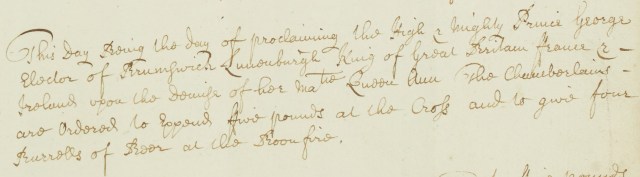 This Day Being the day of proclaiming the High & Mighty Prince George
Elector of Brumswick Lunenburgh King of Great Brittain France &
Ireland upon the Demise of her Matie Queen Ann The Chamberlains
are Ordered to Expend ffive pounds at the Cross and to give four
Burrells of Beer at the Boonfire.